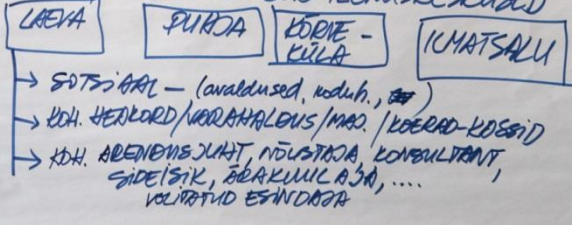 LAEVA PUHJA KÕRVE-KÜLA ILMATSALU
→ SOTSIAAL – (avaldused, koduh., )
→ KOH. HEAKORD/VARAHALDUS/MAJ./KOERAD-KASSID
→ KOH. ARENDUSJUHT, NÕUSTAJA, KONSULTANT,
SIDEISIK, ÄRAKUULAJA, ....
VOLITATUD ESINDAJA